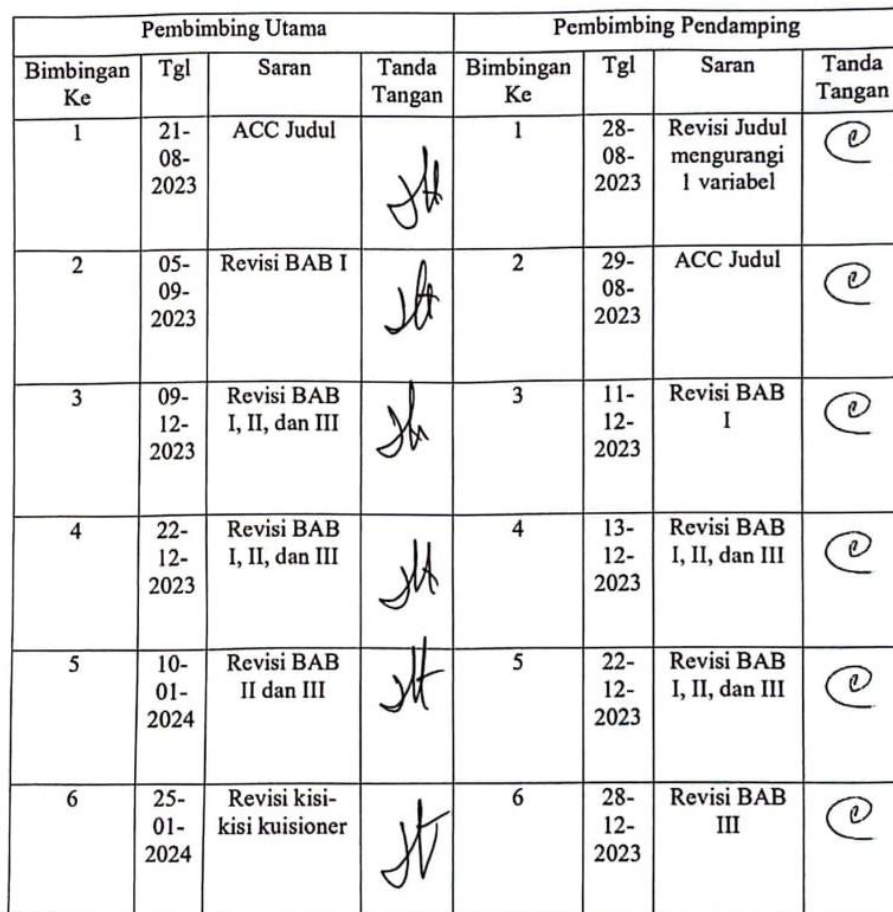 Pembimbing Utama Pembimbing Pendamping
Bimbingan Ke Tgl Saran Tanda Tangan Bimbingan Ke Tgl Saran Tanda Tangan
1 21-08-2023 ACC Judul 1 28-08-2023 Revisi Judul mengurangi 1 variabel
2 05-09-2023 Revisi BAB I 2 29-08-2023 ACC Judul
3 09-12-2023 Revisi BAB I, II, dan III 3 11-12-2023 Revisi BAB I
4 22-12-2023 Revisi BAB I, II, dan III 4 13-12-2023 Revisi BAB I, II, dan III
5 10-01-2024 Revisi BAB II dan III 5 22-12-2023 Revisi BAB I, II, dan III
6 25-01-2024 Revisi kisi-kisi kuisioner 6 28-12-2023 Revisi BAB III